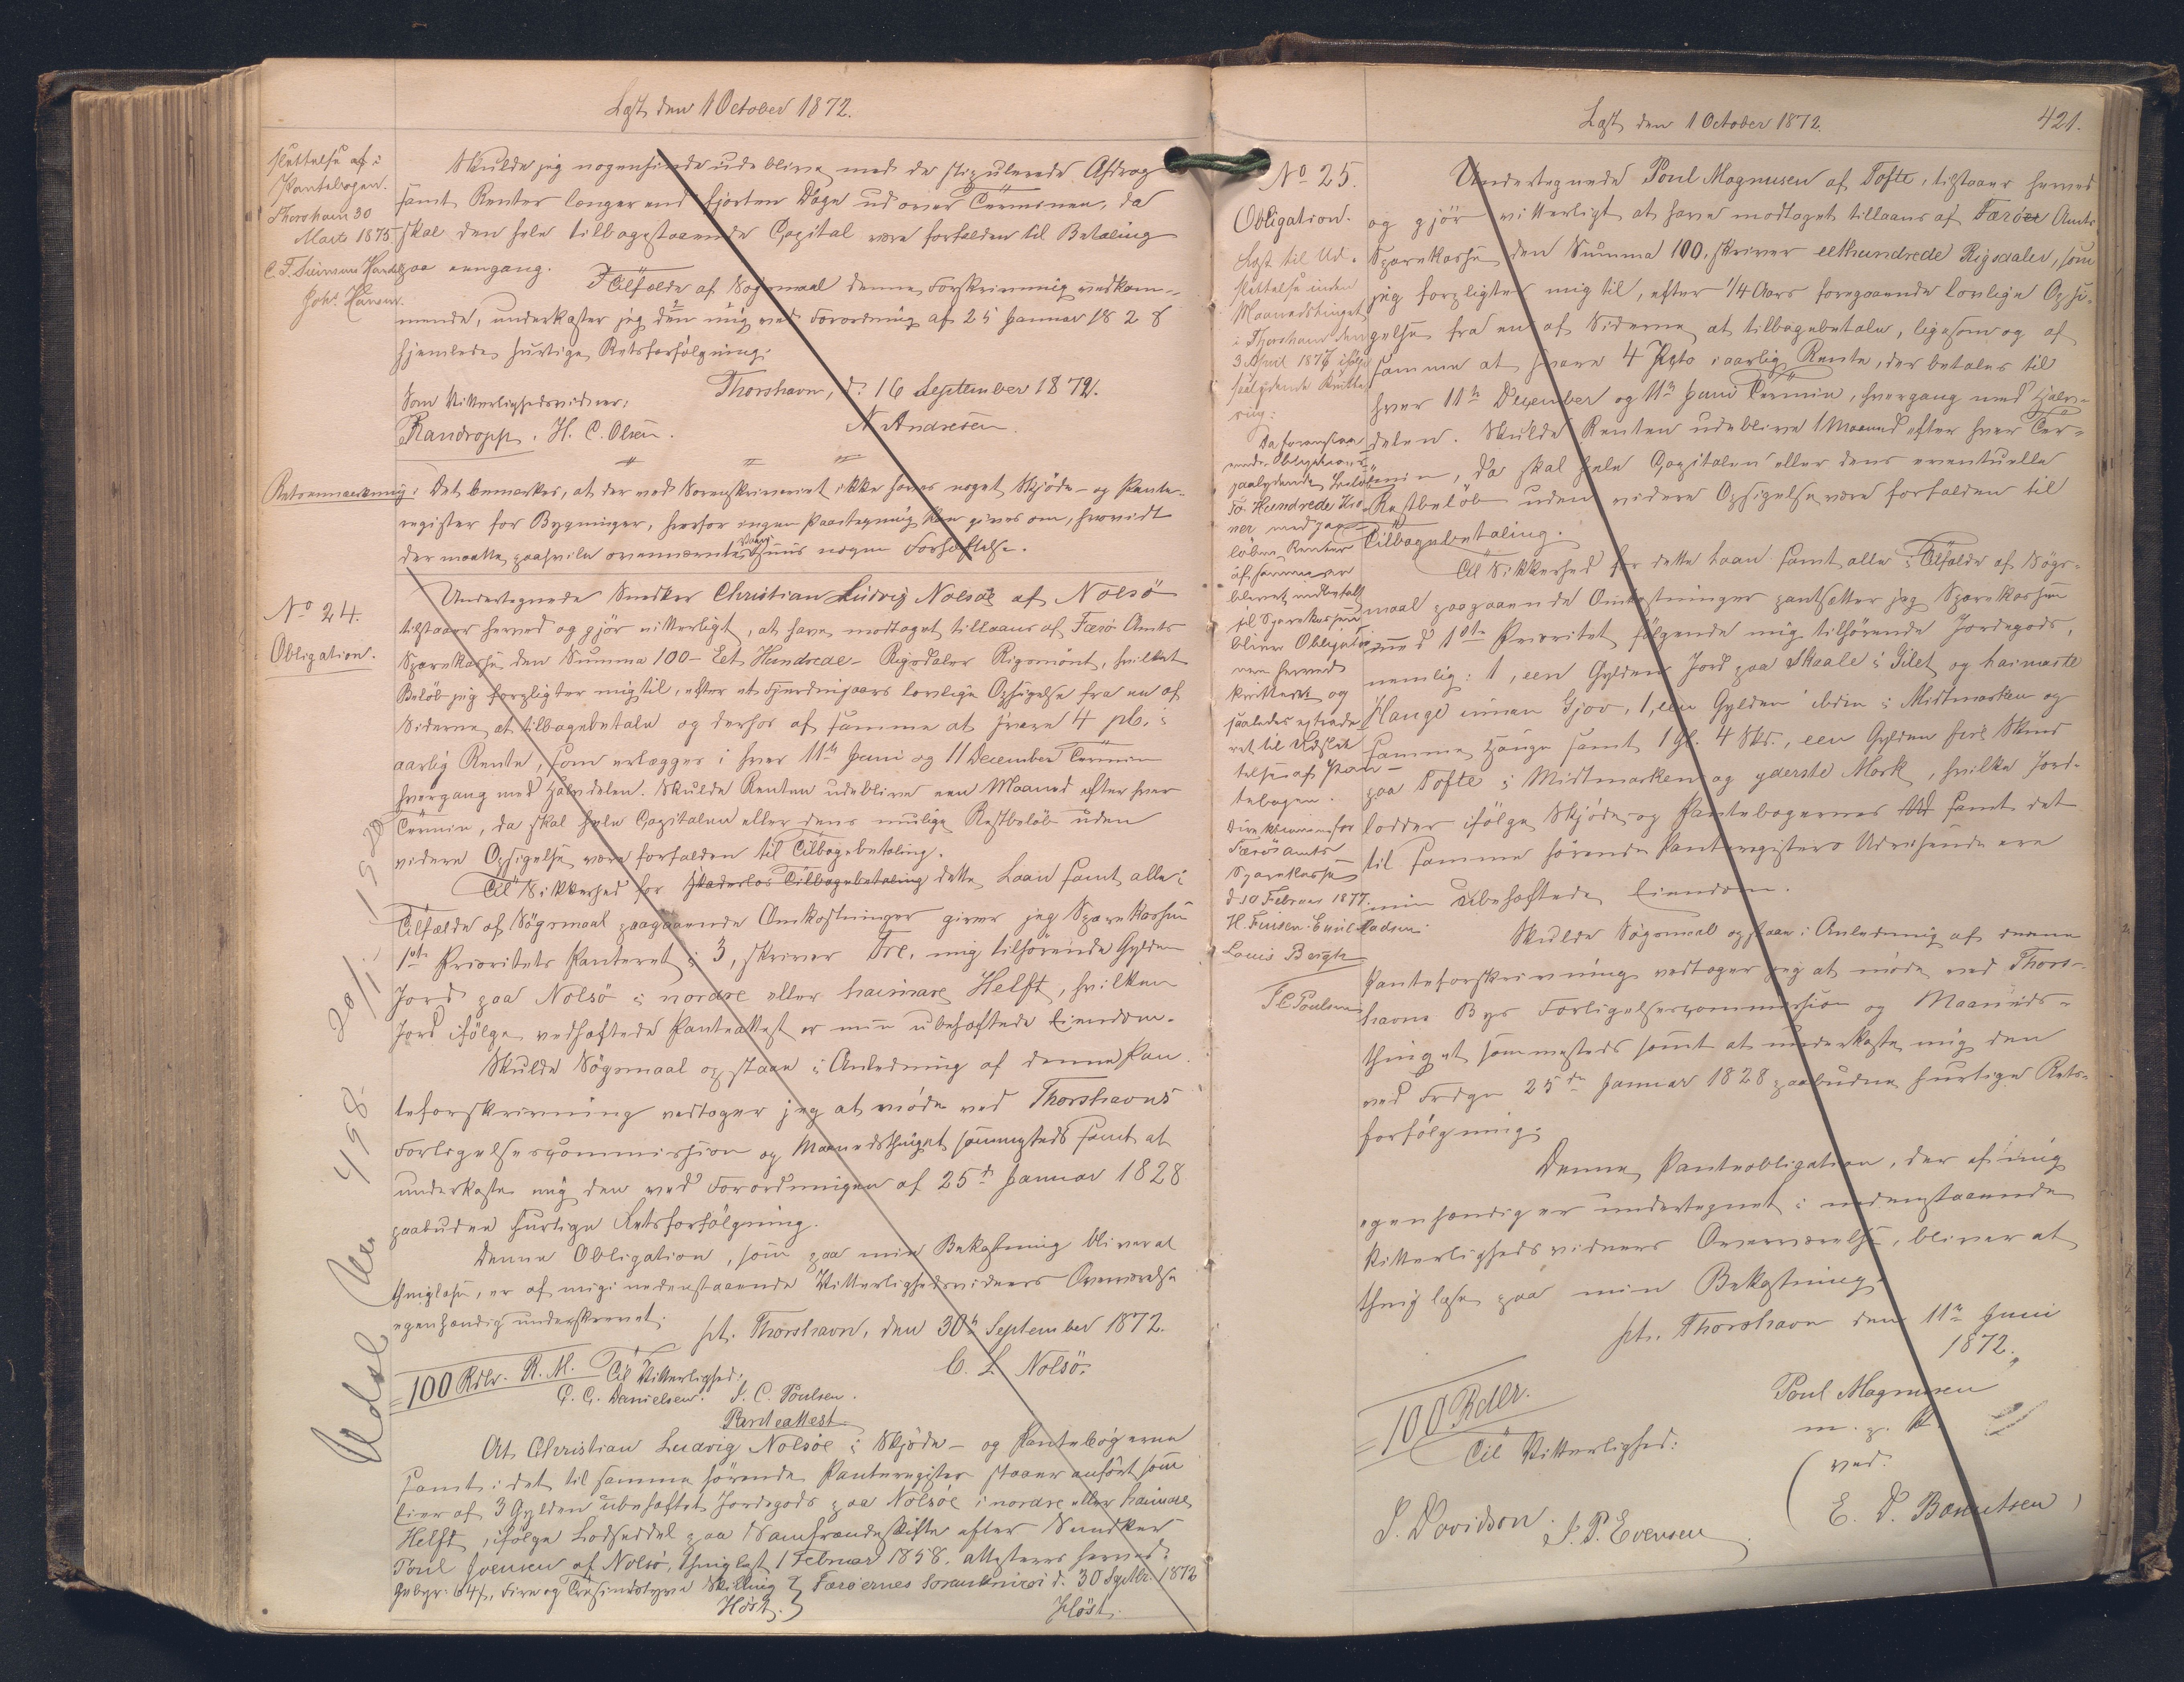 Læst den 1 October 1872.
slettelse af
Pantebogen.
Thorshavn 30
Marts 1875
C. F. Siemsen
Johs Hansen
Skulde jeg nogensinde udeblive med de stipulerede Afdrag
samt Renter længer end fjorten Dage ud over Terminen, da
skal den hele tilbagestaaende Capital være forfalden til Betaling
paa eengang.
I Tilfælde af Søgsmaal denne Forskrivning vedkom-
mende, underkaster jeg mig den ved Forordning af 25 Januar 1828
hjemlede hurtige Retsforfølgning.
Thorshavn, d. 16 September 1872.
Som Vitterlighedsvidner:
N. Andresen
Randropp. H. C. Olsen.
Retsanmærkning: Det bemærkes, at der ved Sorenskriveriet ikke haves noget Skjøde- og Pante-
register for Bygninger, hvorfor ingen Paategning kan gives om, hvorvidt
der maatte paahvile ovennævnte Vaaningshuus nogen Forhæftelse.
No 24.
Obligation.
Undertegnede Snedker Christian Ludvig Nolsøe af Nolsö
tilstaaer herved og gjør vitterligt, at have modtaget tillaans af Færö Amts
Sparekasse den Summa 100 - Eet Hundrede - Rigsdaler Rigsmönt, hvilket
Beløb jeg forpligter mig til, efter et Fjerdingaars lovlige Opsigelse fra en af
Siderne, at tilbagebetale og derhos af samme at svare 4 pCt. i
aarlig Rente, som erlægges i hver 11te Juni og 11 December Termin
hvergang med Halvdelen. Skulde Renten udeblive een Maaned efter hver
Termin, da skal hele Capitalen eller dens mulige Restbeløb uden
videre Opsigelse være forfalden til Tilbagebetaling.
Til Sikkerhed for skadesløs Tilbagebetaling dette Laan samt alle i
Tilfælde af Søgsmaal paagaaende Omkostninger giver jeg Sparekassen
1ste Prioritets Panteret i 3, skriver Tre, mig tilhørende Gylden
Jord paa Nolsö i nordre eller haimare Helft, hvilken
Jord ifølge vedhæftede Panteattest er min ubehæftede Eiendom.
Skulde Søgsmaal opstaae i Anledning af denne Pan-
teforskrivning vedtager jeg at møde ved Thorshavns
Forligelsescommission og Maanedsthinget sammesteds samt at
underkaste mig den ved Forordningen af 25de Januar 1828
paabudne hurtige Retsforfølgning.
Denne Obligation, som paa min Bekostning bliver at
thinglæse, er af mig i nedenstaaende Vitterlighedsvidners Overværelse
egenhændig underskrevet.
pt. Thorshavn, den 30te September 1872.
C. L. Nolsö.
100 Rdlr. R. M. Til Vitterlighed:
Danielsen. J. C. Poulsen.
Panteattest
At Christian Ludvig Nolsöe i Skjøde- og Pantebøgerne
samt i det til samme hørende Panteregister staaer anført som
Eier af 3 Gylden ubehæftet Jordegods paa Nolsöe i nordre eller haimare
Helft, ifølge Lodseddel paa Samfrændeskifte efter Snedker
Poul Joensen af Nolsö, thinglæst 1 Februar 1858, attesteres herved.
Gebyr: 64 s, Fire og Tresindstyve Skilling } Færøernes Sorenskriveri d. 30 Septbr. 1872
Høst. } Høst.
Læst den 1 October 1872.
421.
No 25.
Obligation.
Læst til Ud-
slettelse inden
Maanedsthinget
i Thorshavn den
3 April 1877 ifølge
saalydende Kvitte-
ring:
Da foranstaa-
ende Obligation
paalydende
To Hundrede Kro-
ner med paa-
løbne Renter
af samme er
blevet indbetalt
til Sparekassen
bliver Obligatio-
nen herved
kvitteret og
saaledes extrade-
ret til Udslet-
telse af Pan-
tebogen.
Direktionen for
Færö Amts
Sparekasse
d. 10 Februar 1877.
H. Finsen. Emil Madsen.
Louis Bergh
J. C. Poulsen
Undertegnede Poul Magnusen af Tofte, tilstaaer herved
og gjör vitterligt at have modtaget tillaans af Færöe Amts
Sparekasse den Summa 100, skriver eethundrede Rigsdaler, som
jeg forpligter mig til, efter 1/4 Aars foregaaende lovlige Opsi-
gelse fra en af Siderne at tilbagebetale, ligesom og af
samme at svare 4 Pcto i aarlig Rente, der betales til
hver 11te December og 11te Juni Termin, hvergang med Halv-
delen. Skulde Renten udeblive 1 Maaned efter hver Ter-
min, da skal hele Capitalen eller dens eventuelle
Restbeløb uden videre Opsigelse være forfalden til
Tilbagebetaling.
Til Sikkerhed for dette Laan samt alle i Tilfælde af Søgs-
maal paagaaende Omkostninger pantsætter jeg Sparekassen
med 1ste Prioritet følgende mig tilhørende Jordegods,
nemlig: 1, een Gylden Jord paa Skaale i Gilet og haimaste
Hauge innan Gjov, 1, een Gylden ibdm i Midtmarken og
samme Hauge samt 1 Gl. 4 Skd., een Gylden fire Skind
paa Tofte i Midtmarken og yderste Mark, hvilke Jord-
lodder ifølge Skjøde og Pantebogernes Ud samt det
til samme hørende Panteregisters Udvisende ere
min ubehæftede Eiendom.
Skulde Søgsmaal opstaae i Anledning af denne
Panteforskrivning vedtager jeg at møde ved Thors-
havns Byes Forligelsescommission og Maaneds-
thinget sammesteds samt at underkaste mig den
ved Frdgn 25de Januar 1828 paabudne hurtige Rets-
forfølgning.
Denne Panteobligation, der af mig
egenhændig er undertegnet i nedenstaaende
Vitterlighedsvidners Overværelse, bliver at
thinglæse paa min Bekostning.
pt. Thorshavn den 11te Juni
1872.
100 Rdlr.
Poul Magnusen
m. p. P.
Til Vitterlighed:
(ved.
J. Davidson. J. P. Evensen.
E. D. Bærentsen)
Udsl.
498
20/1 - 1920